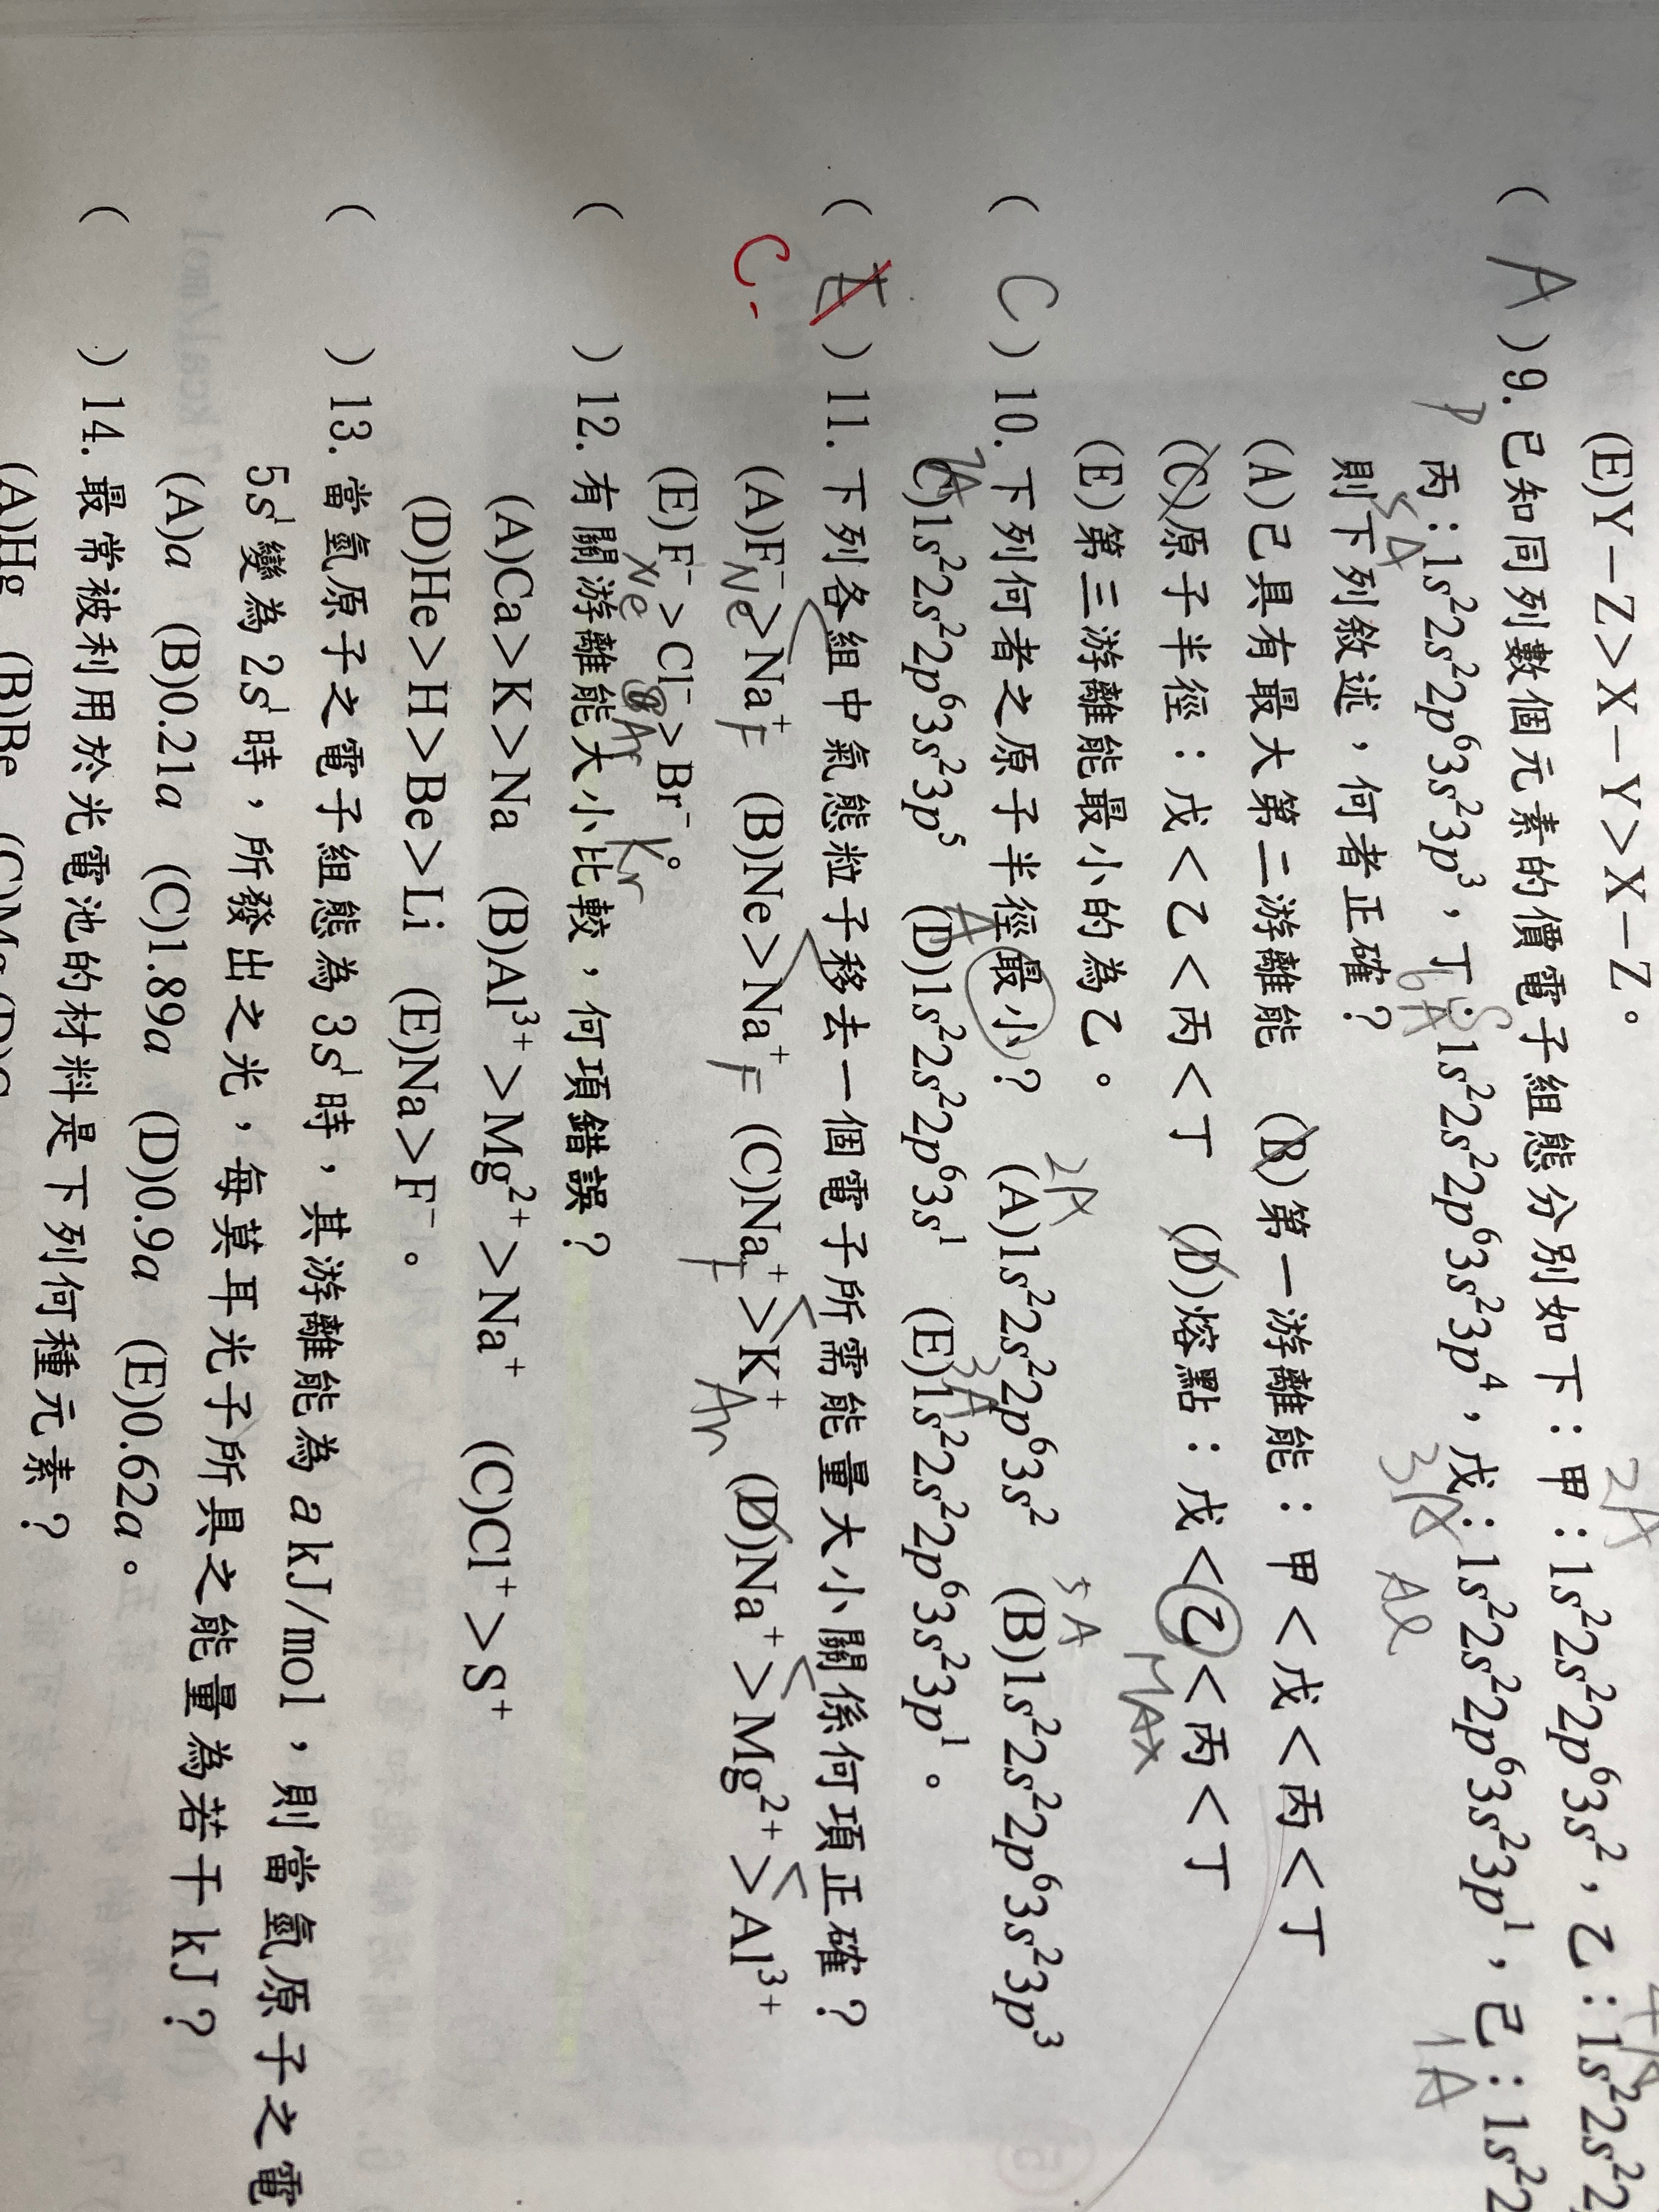 (E)Y－Z＞X－Y＞X－Z。
( A )9.已知同列數個元素的價電子組態分別如下：甲：1s²2s²2p⁶3s²，乙：1s²2s²2
丙：1s²2s²2p⁶3s²3p³，丁：1s²2s²2p⁶3s²3p⁴，戊：1s²2s²2p⁶3s²3p¹，己：1s²2
則下列敘述，何者正確？
(A)己具有最大第二游離能 (B)第一游離能：甲＜戊＜丙＜丁
(C)原子半徑：戊＜乙＜丙＜丁 (D)熔點：戊＜乙＜丙＜丁
(E)第三游離能最小的為乙。
( C )10.下列何者之原子半徑最小？ (A)1s²2s²2p⁶3s² (B)1s²2s²2p⁶3s²3p³
(C)1s²2s²2p⁶3s²3p⁵ (D)1s²2s²2p⁶3s¹ (E)1s²2s²2p⁶3s²3p¹。
( E )11.下列各組中氣態粒子移去一個電子所需能量大小關係何項正確？
C
(A)F⁻＞Na⁺ (B)Ne＞Na⁺ (C)Na⁺＞K⁺ (D)Na⁺＞Mg²⁺＞Al³⁺
Ne F F F Ar
(E)F⁻＞Cl⁻＞Br⁻。
Ne Ar Kr
( )12.有關游離能大小比較，何項錯誤？
(A)Ca＞K＞Na (B)Al³⁺＞Mg²⁺＞Na⁺ (C)Cl⁺＞S⁺
(D)He＞H＞Be＞Li (E)Na＞F⁻。
( )13.當氫原子之電子組態為 3s¹時，其游離能為 a kJ/mol，則當氫原子之電
5s¹變為 2s¹時，所發出之光，每莫耳光子所具之能量為若干 kJ？
(A)a (B)0.21a (C)1.89a (D)0.9a (E)0.62a。
( )14.最常被利用於光電池的材料是下列何種元素？
(A)Hg (B)Be
2A
3A Al
1A
5A
6A
MAX
2A
5A
7A
1A
3A